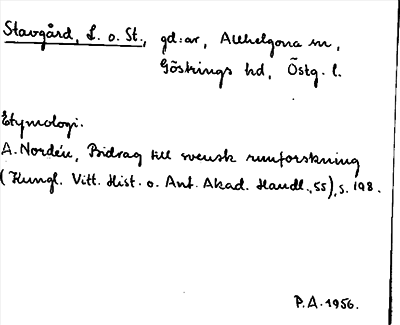 Stavgård, L. o. St., gd:ar, Allhelgona sn,
Göstrings hd, Östg. l.
Etymologi.
A. Nordén, Bidrag till svensk runforskning
(Kungl. Vitt. Hist. o. Ant. Akad. Handl., 55), s. 198.
P.A. 1956.